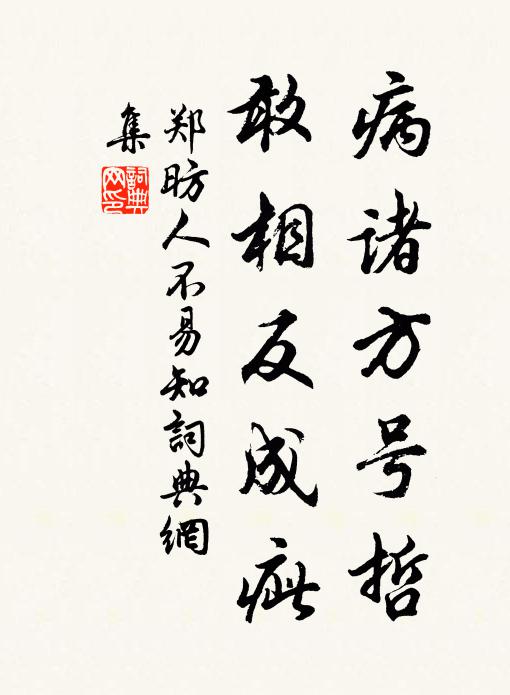 病诸方号哲
敢相反成疵
郑昉人不易知詞典網
集
詞典
网印